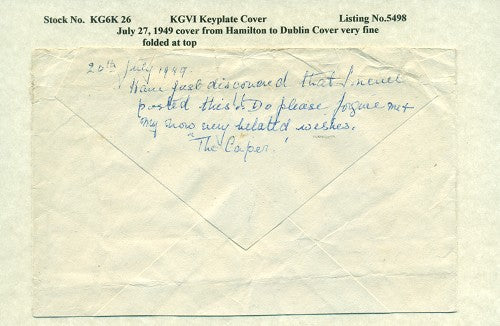 Stock No. KG6K 26 KGVI Keyplate Cover Listing No.5498
July 27, 1949 cover from Hamilton to Dublin Cover very fine
folded at top
20th July 1949
Have just discovered that I never
posted this. Do please forgive me &
my now very belated wishes.
"The Caper."